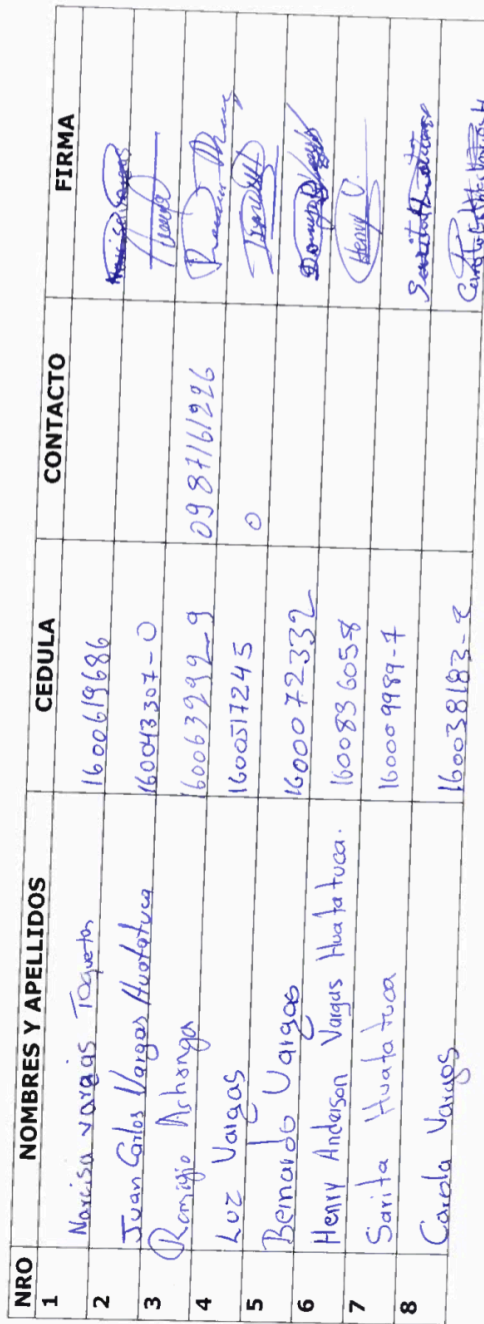 NRO NOMBRES Y APELLIDOS CEDULA CONTACTO FIRMA
1 Narcisa Vargas 1600619686
2 Juan Carlos Vargas Huatatuca 160043307-0
3 Remigio 160063292-9 0987161226
4 Luz Vargas 1600517245 0
5 Bernardo Vargas 1600072332
6 Henry Anderson Vargas Huatatuca. 1600836058 Henry V.
7 Sarita Huatatuca 160009989-7 Sarita Huatatuca
8 Carola Vargas 160038183-2